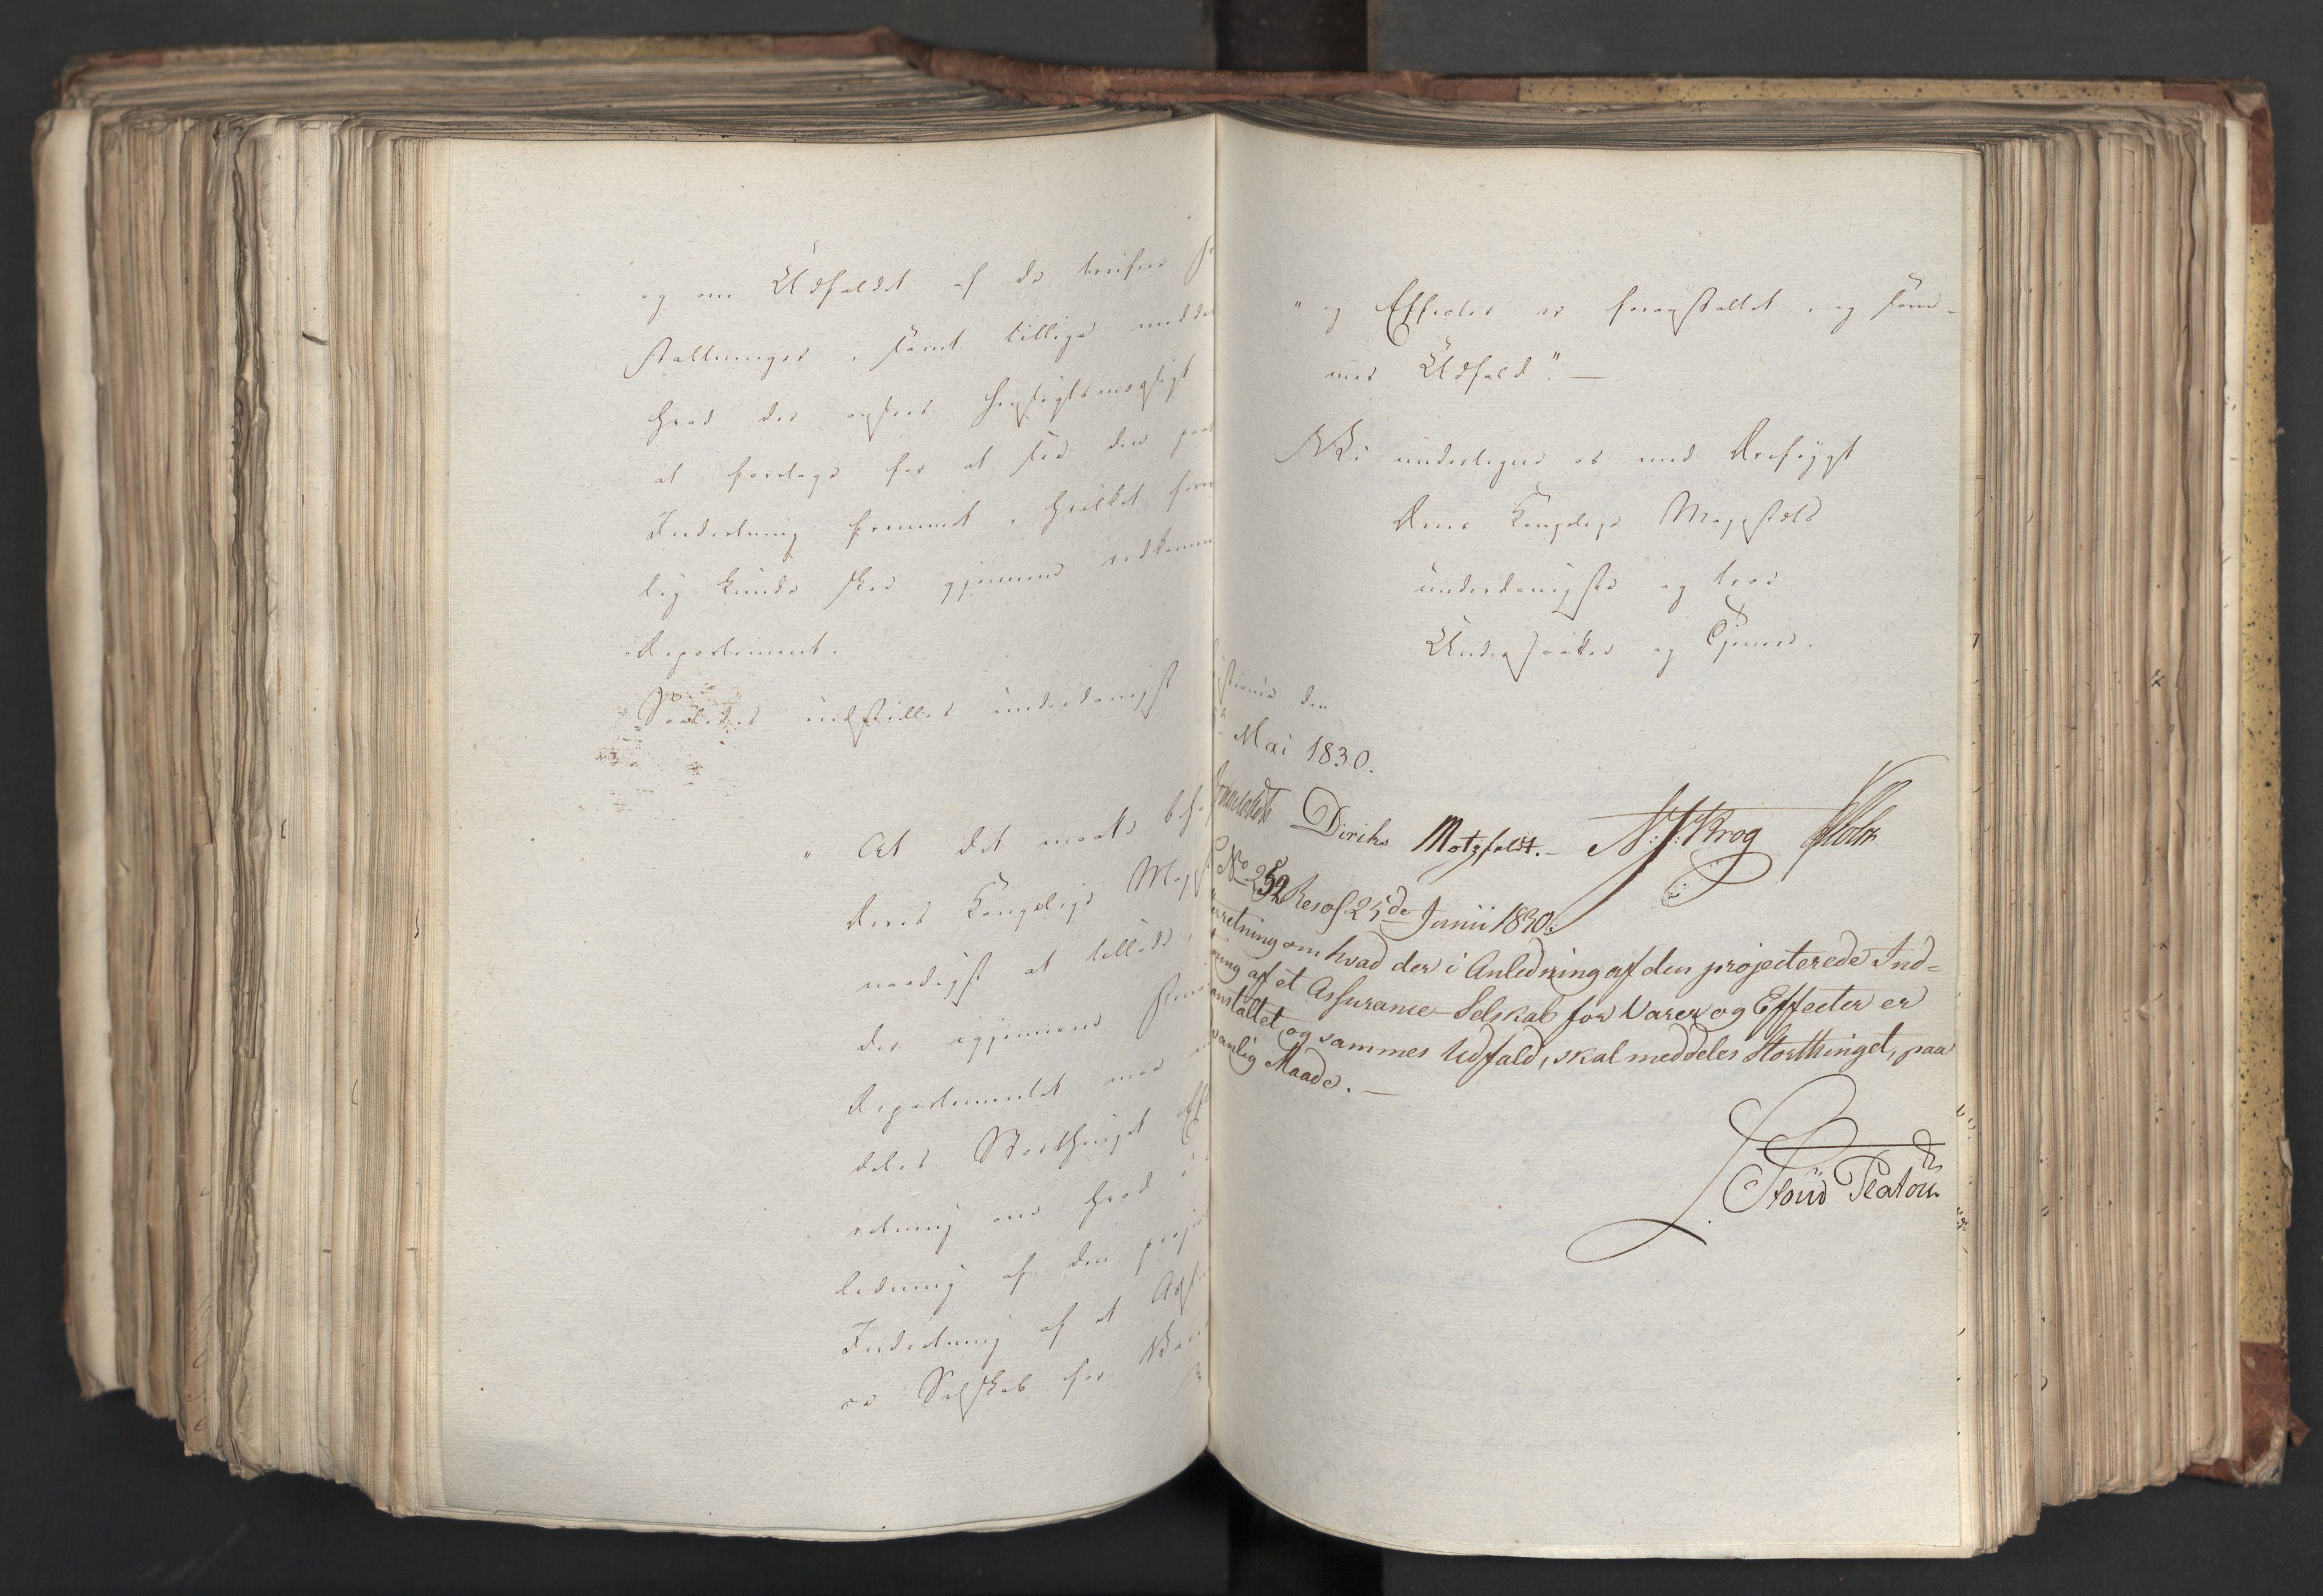 og om Udfaldet af de trufne
staltninger, samt tillige meddel
hvad der ansees hensigtsmæssigt
at foretage for at see den paa
Indretning fremmet, hvilket
lig kunde skee gjennem vedkomm
Departement.
Saaledes indstilles underdanigst
"At det maatte beha
Deres Kongelige Maj
naadigst at tillade,
der igjennem
Departementet
deles Storthinget
retning om hvad i
ledning af den proje
Indretning af et Assu
ce Selskab for Vare
" og Effecter er foranstaltet, og sam-
mes Udfald". —
Vi undertegne os med Ærefrygt
Deres Kongelige Majestæts
underdanigste og troe
Undersaatter og Tjenere.
stiania den
Mai 1830.
Diriks Motzfeldt. N. J. Krog Holst
No 252 Resol 25de Junii 1830:
rretning om hvad der i Anledning af den projecterede Ind-
ning af et Assurance-Selskab for Varer og Effecter er
anstaltet, og sammes Udfald, skal meddeles Storthinget, paa
vanlig Maade. —